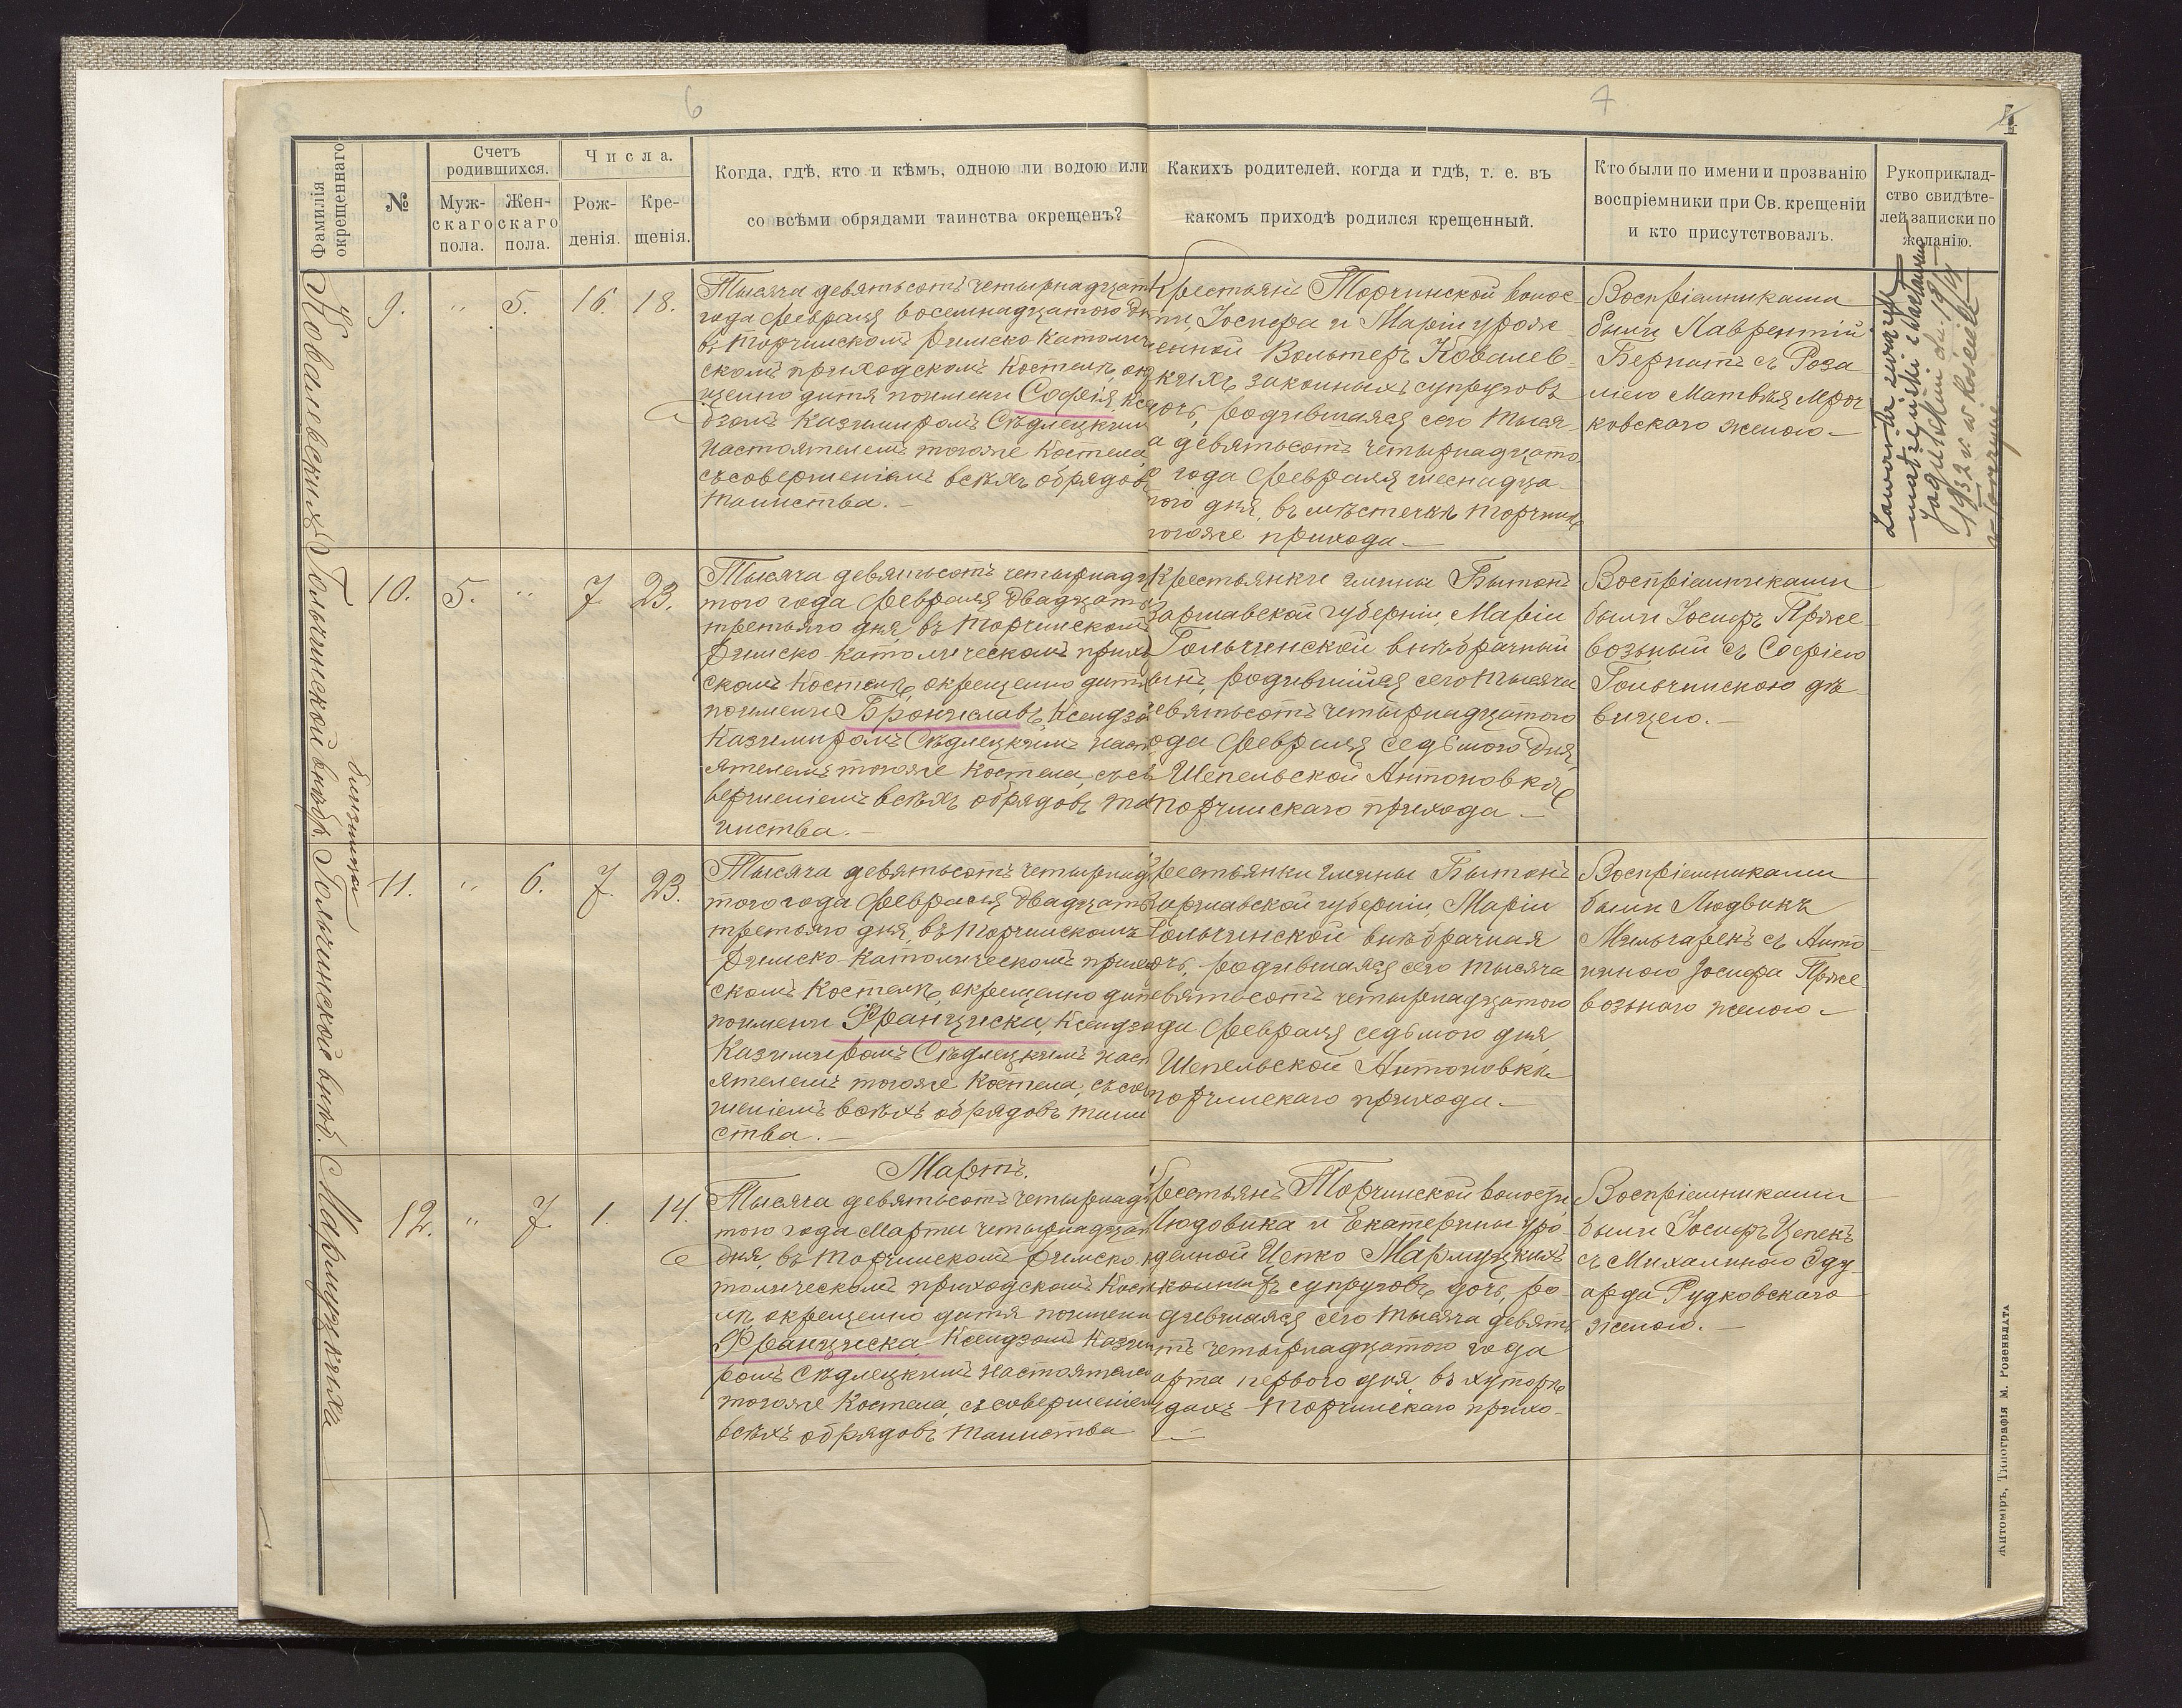 6
7
4
Фамилія окрещеннаго
№
Счетъ родившихся.
Муж-
скаго
пола.
Жен-
скаго
пола.
Числа.
Рож-
денія.
Кре-
щенія.
Когда, гдѣ, кто и кѣмъ, одною ли водою или
со всѣми обрядами таинства окрещенъ?
Какихъ родителей, когда и гдѣ, т. е. въ
какомъ приходѣ родился крещенный.
Кто были по имени и прозванію
воспріемники при Св. крещеніи
и кто присутствовалъ.
Рукоприклад-
ство свидѣте-
лей записки по
желанію.
Ковалевская
9.
"
5.
16.
18.
Тысяча девятьсотъ четырнадцат
года Февраля восемнадцатого дн
въ Торчинскомъ Римско Католиче
скомъ приходскомъ Костелѣ, окр
щено дитя поимени Софія, Ксен
дзомъ Казимиромъ Сѣдлецкимъ
Настоятелемъ тогоже Костела,
съ совершеніемъ всѣхъ обрядовъ
Таинства. —
Крестьянъ Торчинской волос-
ти, Іосифа и Маріи урож-
енной Вольтеръ Ковалев-
кихъ законныхъ супруговъ
дочь, родившаяся сего тыся-
а девятьсотъ четырнадцато
о года Февраля шеснадца-
того дня, въ мѣстечкѣ Торчинѣ
тогоже прихода. —
Воспріемниками
были Лаврентій
Бернатъ съ Роза
ліею Матвѣя Мроч
ковскаго женою. —
Гольчинской внѣбр.
10.
5.
"
7.
23.
Тысяча девятьсотъ четырнадца
того года Февраля двадцать
третьяго дня, въ Торчинскомъ
Римско-Католическомъ приход
скомъ Костелѣ, окрещено дитя
поимени Брониславъ, Ксендзо
Казимиромъ Сѣдлецкимъ наст
ятелемъ тогоже Костела, съ со
вершеніемъ всѣхъ обрядовъ та
инства. —
Крестьянки гмины Бытонь
Варшавской губерніи, Маріи
Гольчинской внѣбрачный
ынъ, родившійся сего тысяча
евятьсотъ четырнадцатого
ода Февраля седьмого дня,
Шепельской Антоновкѣ
Торчинскаго прихода —
Воспріемниками
были Іосифъ Прже-
возьный съ Софіею
Гольчинскою дѣ-
вицею. —
близнята
Гольчинской внѣб.
11.
"
6.
7.
23.
Тысяча девятьсотъ четырнад
того года Февраля двадцать
третьяго дня, въ Торчинскомъ
Римско-Католическомъ приход
скомъ Костелѣ, окрещено дитя
поимени Франциска, Ксендзо
Казимиромъ Сѣдлецкимъ наст
ятелемъ тогоже Костела, съ сове
шеніемъ всѣхъ обрядовъ таин
ства. —
рестьянки гмины Бытонь
Варшавской губерніи, Маріи
Гольчинской внѣбрачная
очь, родившаяся сего тысяча
евятьсотъ четырнадцатого
ода Февраля седьмого дня,
Шепельской Антоновкѣ
Торчинскаго прихода. —
Воспріемниками
были Людвикъ
Мильчарекъ съ Анто-
ниною Іосифа Прже
возьнаго женою. —
Мармуцкихъ
Мартъ.
12.
"
7.
1.
14.
Тысяча девятьсотъ четырнадц
того года Марта четырнадцат
дня, въ Торчинскомъ Римско К
толическомъ приходскомъ Косте
лѣ, окрещено дитя поимени
Франциска, Ксендзомъ Казими
ромъ Сѣдлецкимъ Настоятелем
тогоже Костела, съ совершеніем
всѣхъ обрядовъ таинства
рестьянъ Торчинской волости,
Людовика и Екатерины уро-
денной Цепко Мармуцкихъ
конныхъ супруговъ дочь, ро-
дившаяся сего тысяча девять
тъ четырнадцатого года
арта перваго дня, въ хуторѣ
Торчинскаго прихо-
Воспріемниками
были Іосифъ Цепекъ
съ Михалиною Эду-
арда Рудковскаго
женою. —
Zawarła związek
małżeński z Wacławem
1932 r. w kościele
Житоміръ, Типографія М. Розенблата